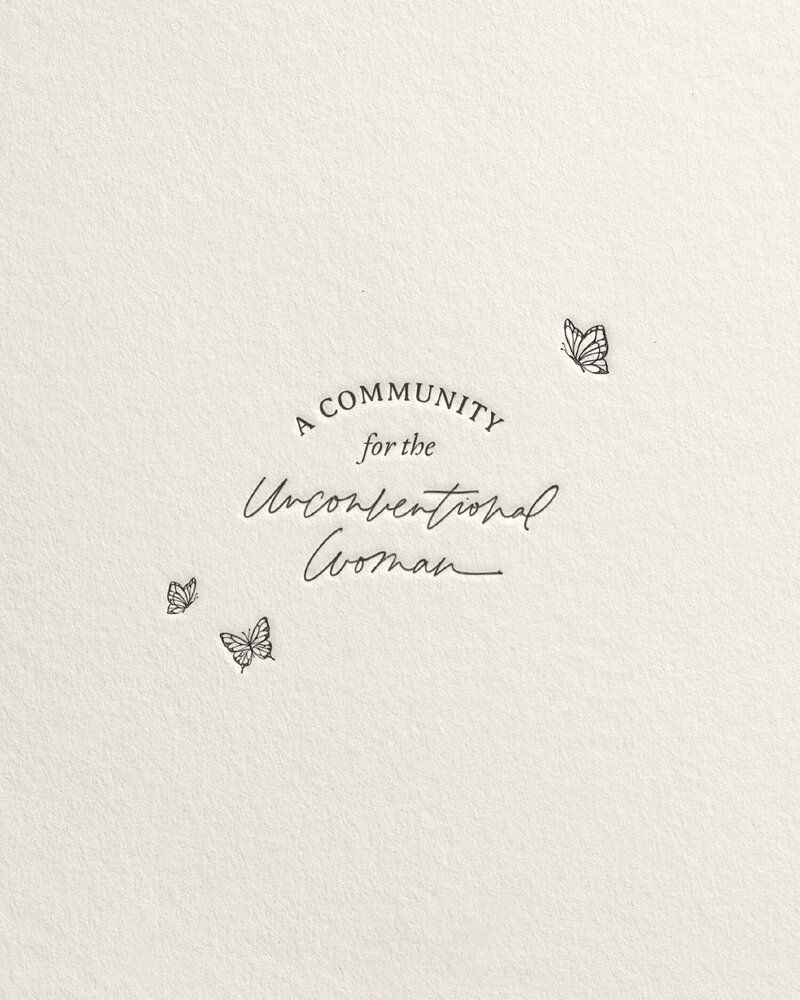 A COMMUNITY
for the
Unconventional
Woman